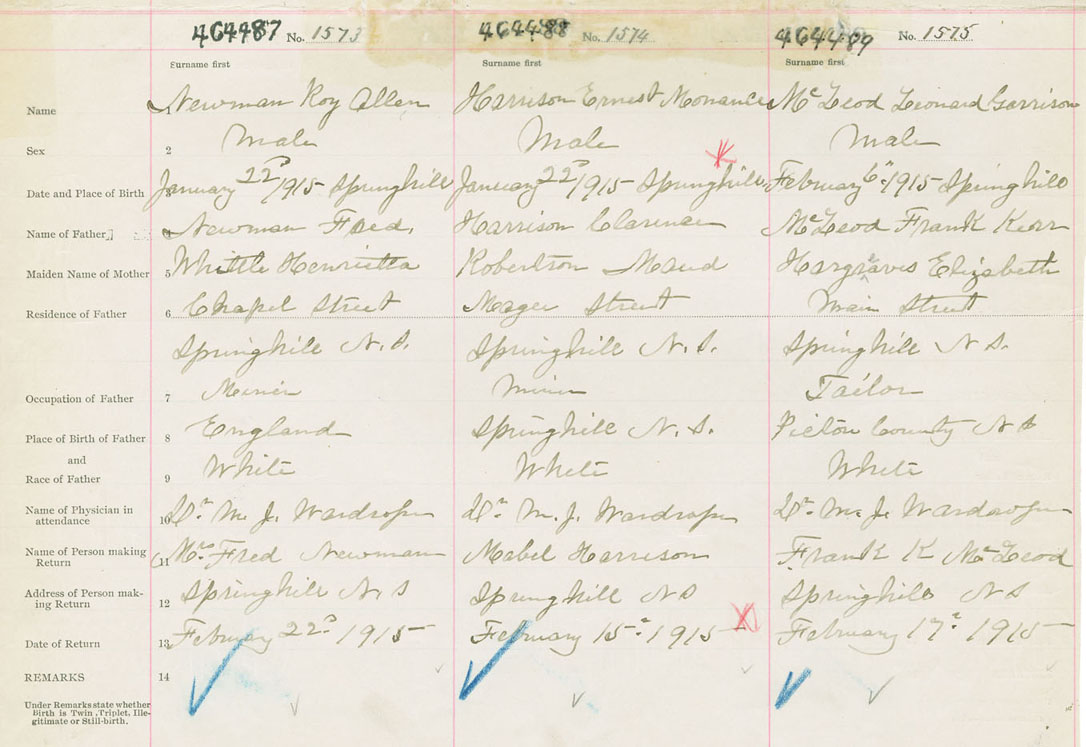 464487 No. 1573 464488 No. 1574 464489 No. 1575
Surname first Surname first Surname first
Name 1 Newman Roy Allen Harrison Ernest McLeod Leonard Garrison
Sex 2 Male Male Male
Date and Place of Birth 3 January 22d 1915 Springhill January 22d 1915 Springhill February 6th 1915 Springhill
Name of Father 4 Newman Fred. Harrison Clarence McLeod Frank Kerr
Maiden Name of Mother 5 Whittle Henrietta Robertson Maud Hargraves Elizabeth
Residence of Father 6 Chapel Street Street Main Street
Springhill N.S. Springhill N.S. Springhill N S.
Occupation of Father 7 Miner Miner Tailor
Place of Birth of Father 8 England Springhill N.S. Pictou County N S
and
Race of Father 9 White White White
Name of Physician in
attendance 10 Dr. M. J. Wardrope Dr. M. J. Wardrope Dr. M. J. Wardrope
Name of Person making
Return 11 Fred Newman Mabel Harrison Frank K McLeod
Address of Person mak-
ing Return 12 Springhill N. S Springhill N S Springhill N S
Date of Return 13 February 22d 1915 February 15th 1915 February 17th 1915
REMARKS 14
Under Remarks state whether
Birth is Twin, Triplet, Ille-
gitimate or Still-birth.